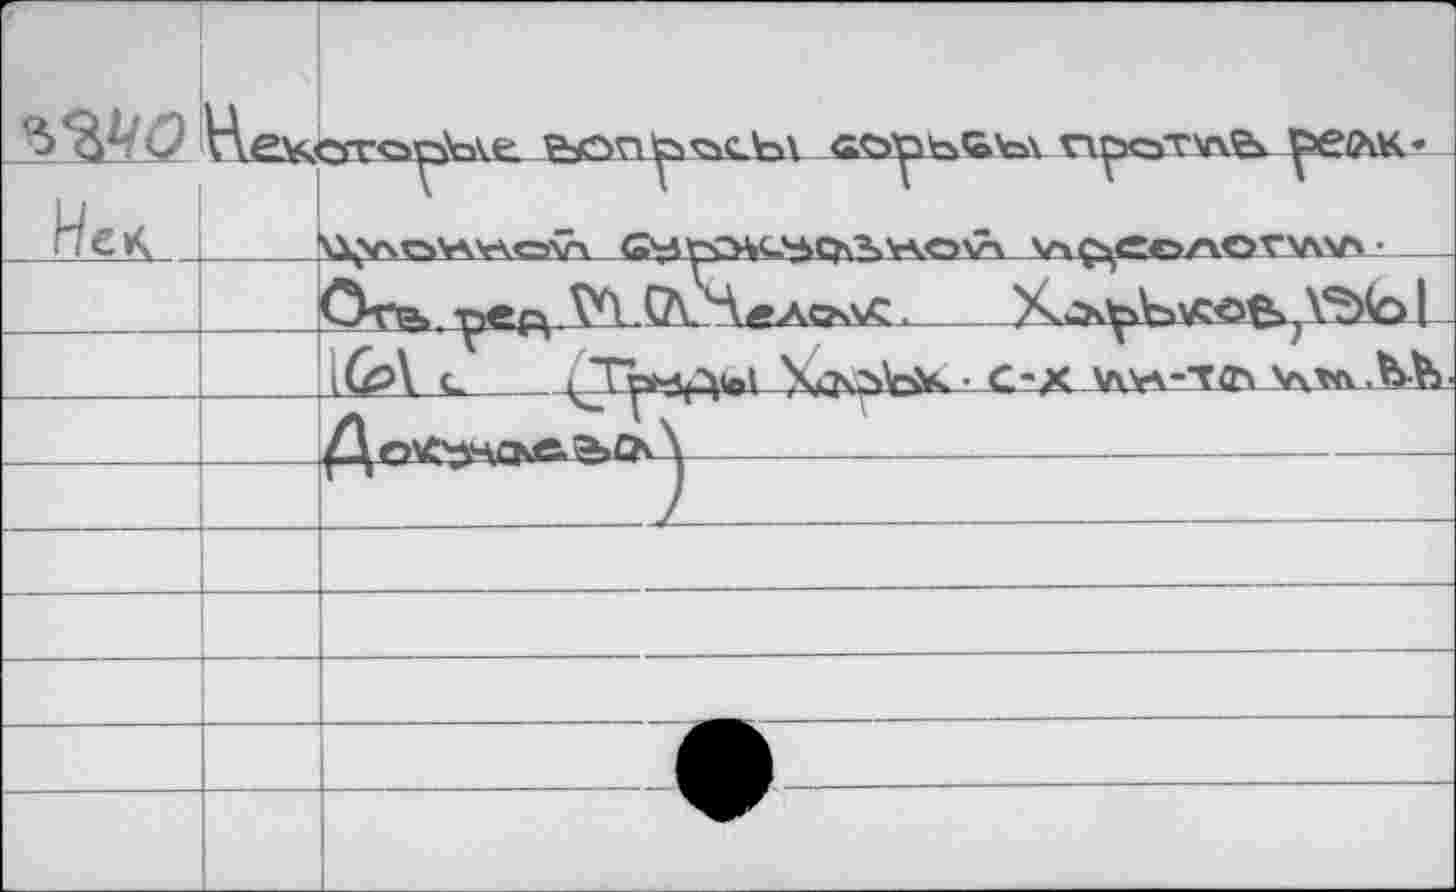 Некоторые вопросы борьбы против реак-
Нек
ционной буржуазной идеологии.
Отв. ред. М.А. Челак. Харьков, 1961
161 с. (Труды Харьк. с-х ин-та им. В.В.
Докучаева)